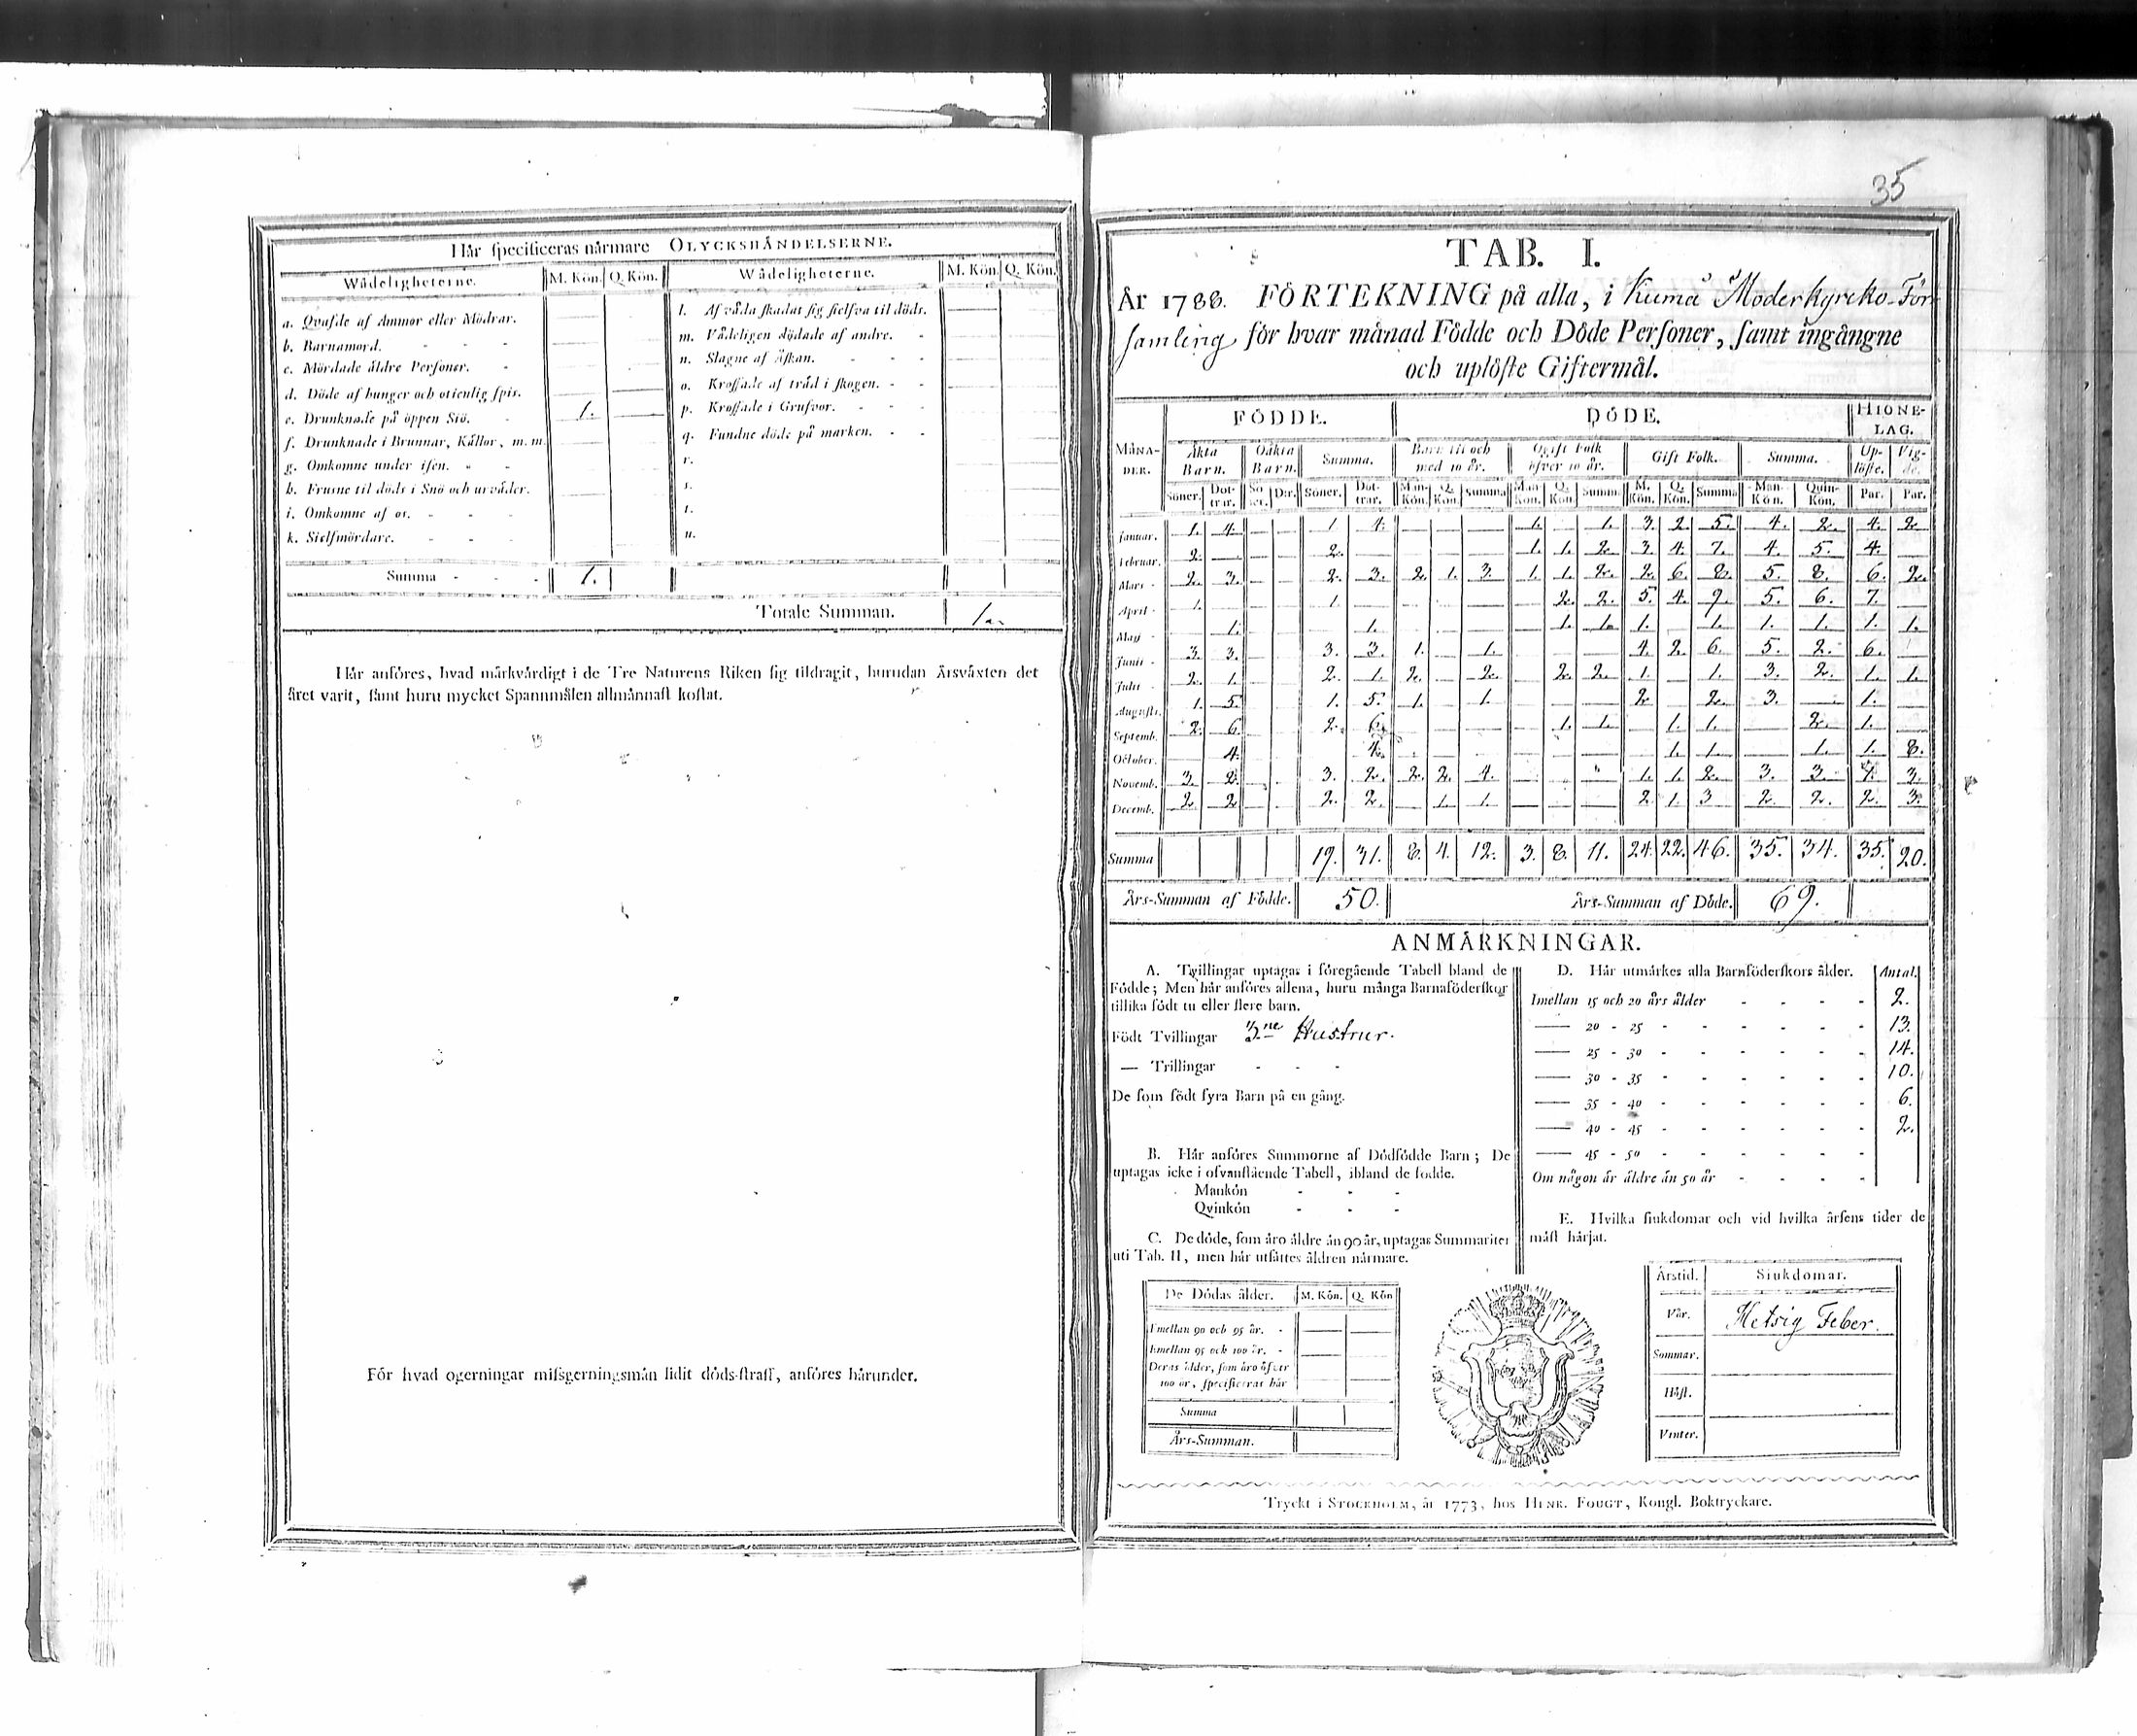 Här specificeras nårmare OLYCKSHÅNDELSERNE.
Wådeligheterne. M. Kön. Q. Kön. Wådeligheterne. M. Kön. Q. Kön.
a. Qvafde af Ammor eller Mödrar.
b. Barnamord.
c. Mördade åldre Personer.
d. Döde af hunger och otienlig spis.
e. Drunknade på öppen Siö. 1. —
f. Drunknade i Brunnar, Kållor, m. m.
g. Omkomne under isen.
h. Frusne til döds i Snö och urvåder.
i. Omkomne af os.
k. Sielfmördare.
l. Af våda skadat sig sielfva til döds.
m. Vådeligen dödade af andre.
n. Slagne af Åskan.
o. Krossade af tråd i skogen.
p. Krossade i Grufvor.
q. Fundne döde på marken.
r.
s.
t.
u.
Summa 1.
Totale Summan. 1
Hår anföres, hvad mårkvårdigt i de Tre Naturens Riken sig tildragit, hurudan Årsvåxten det
året varit, samt huru mycket Spannmålen allmånnast kostat.
För hvad ogerningar missgerningsmån lidit döds-straff, anföres hårunder.
35
TAB. I.
År 1788. FÖRTEKNING på alla, i Kumå Moderkyrko-För-
samling för hvar månad Födde och Döde Personer, samt ingångne
och uplöste Giftermål.
FÖDDE. DÖDE. HIONE-LAG.
MÅNA-DER. Åkta Barn. Oåkta Barn. Summa. Barn til och med 10 år. Ogift Folk öfver 10 år. Gift Folk. Summa. Up-löste. Vig-de.
Söner. Dot-trar. Sö-ner. Dr. Söner. Döt-trar. Man-Kön. Q. Kön. Summa Man-Kön. Q. Kön. Summa M. Kön. Q. Kön. Summa Man-Kön. Quin-Kön. Par. Par.
Januar. 1. 4. — — 1 4. — — — 1. — 1. 3. 2. 5. 4. 2. 4. 2.
Februar. 2. — — — 2. — — — — 1. 1. 2. 3. 4. 7. 4. 5. 4. —
Mars 2. 3. — — 2. 3. 2. 1. 3. 1. 1. 2. 2. 6. 8. 5. 8. 6. 2.
April 1. 1. — — — — 2. 2. 5. 4. 9. 5. 6. 7. —
Maji 1. 1. — — — — 1. 1. 1. — 1. 1. 1. 1. 1.
Junii 3. 3. 3. 3. 1. 1. — — — 4. 2. 6. 5. 2. 6. —
Julii 2. 1. 2. 1. 2. — 2. — 2. 2. 1. — 1. 3. 2. 1. 1.
Augusti. 1. 5. 1. 5. 1. — 1. — — — 2 — 2. 3. — 1. —
Septemb. 2. 6. 2. 6. — — — — 1. 1. — 1. 1. — 2. 1. —
October. 4. 4. — — — — — — — 1. 1. — 1. 1. 8.
Novemb. 3. 2. 3. 2. 2. 2. 4. — — 1. 1. 2. 3. 3. 1. 3.
Decemb. 2 2 2. 2. — 1. 1. — — — 2. 1. 3 2. 2. 2. 3.
Summa 19. 31. 8. 4. 12. 3. 8. 11. 24. 22. 46. 35. 34. 35. 20.
Års-Summan af Födde. 50. Års-Summan af Döde. 69.
ANMÅRKNINGAR.
A. Tvillingar uptagas i föregående Tabell bland de
Födde; Men hår anföres allena, huru många Barnaföderskor
tillika födt tu eller flere barn.
Födt Tvillingar Hustrur.
— Trillingar
De som födt fyra Barn på en gång.
B. Hår anföres Summorne af Dödfödde Barn; De
uptagas icke i ofvanstående Tabell, ibland de födde.
Mankön
Qvinkön
C. De döde, som åro åldre ån 90 år, uptagas Summariter
uti Tab. II, men hår utsåttes åldren nårmare.
De Dödas ålder. M. Kön. Q. Kön
Emellan 90 och 95 år.
Emellan 95 och 100 år.
Deras ålder, som åro öfver
100 år, specificeras hår
Summa
Års-Summan.
D. Hår utmårkes alla Barnföderskors ålder. Antal.
Imellan 15 och 20 års ålder 2.
— 20 - 25 13.
— 25 - 30 14.
— 30 - 35 10.
— 35 - 40 6.
— 40 - 45 2.
— 45 - 50
Om någon år åldre ån 50 år
E. Hvilka siukdomar och vid hvilka årsens tider de
måst hårjat.
Årstid. Siukdomar.
Vår. Hetsig Feber.
Sommar.
Höst.
Vinter.
Tryckt i STOCKHOLM, år 1773, hos HENR. FOUGT, Kongl. Boktryckare.